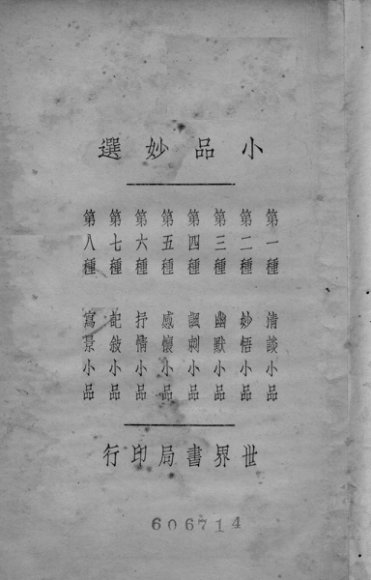 小品妙選
第一種 清談小品
第二種 妙悟小品
第三種 幽默小品
第四種 諷刺小品
第五種 感懷小品
第六種 抒情小品
第七種 記敘小品
第八種 寫景小品
世界書局印行
606714